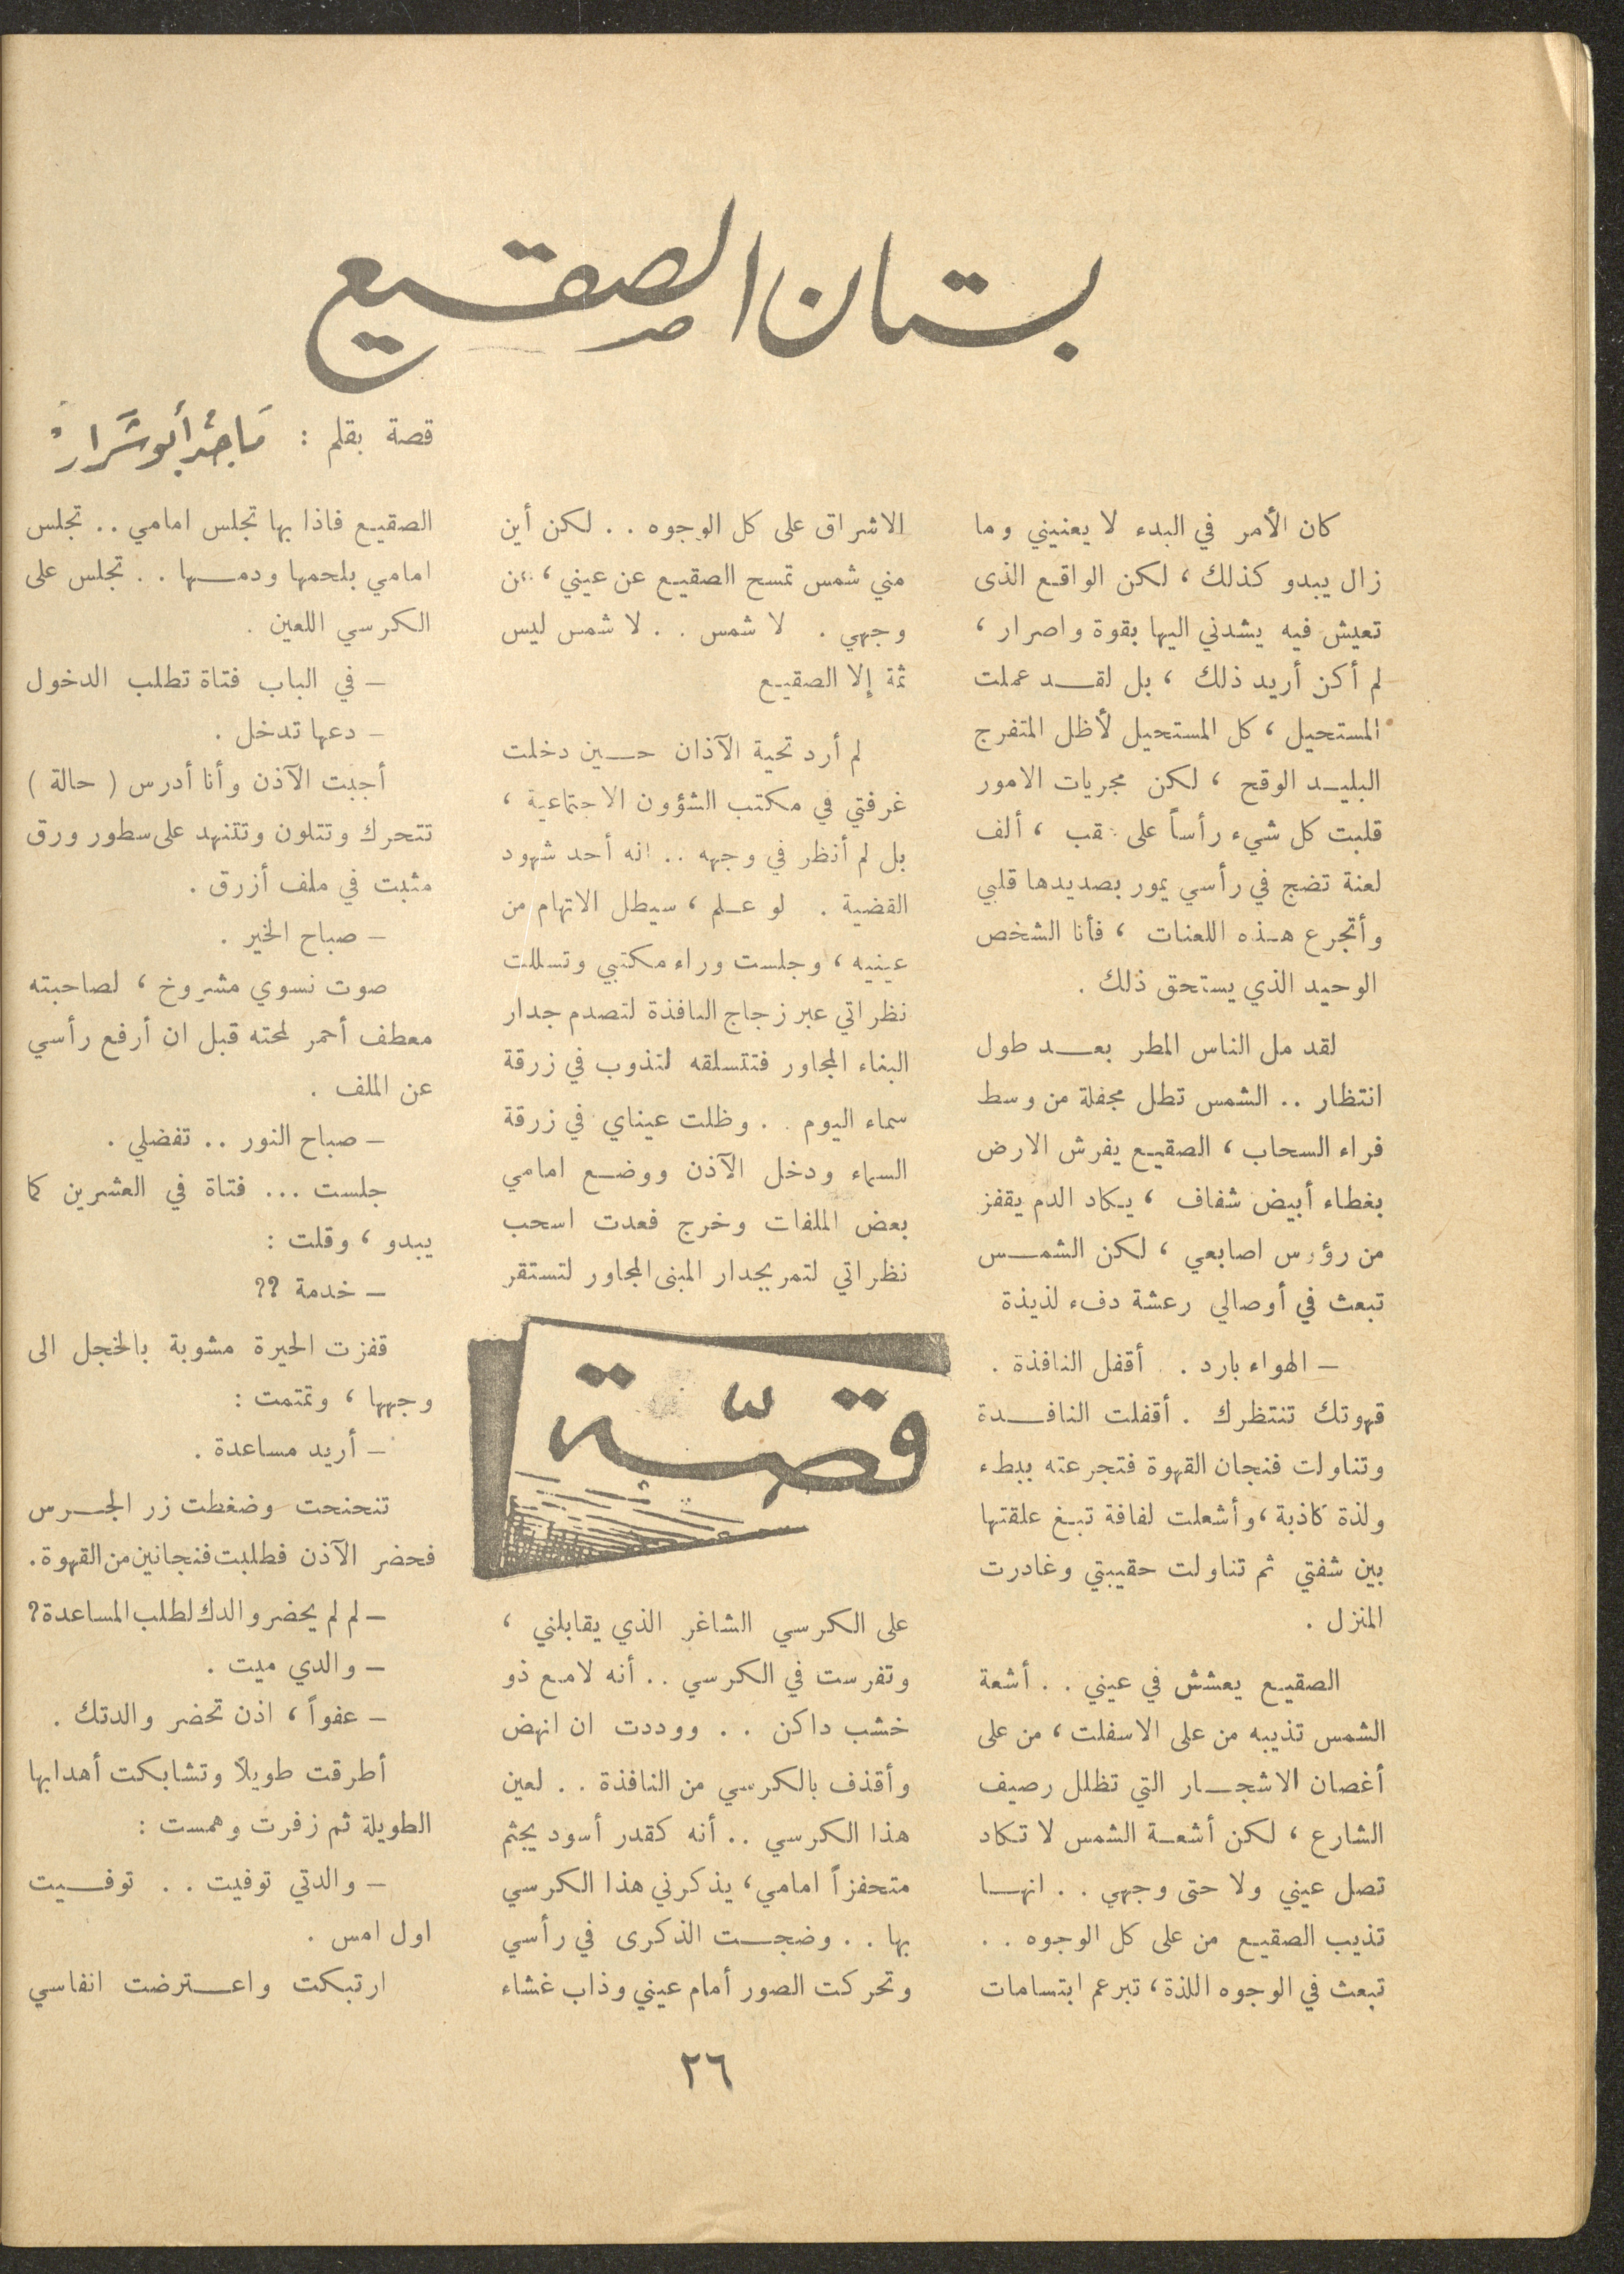 بستان الصقيع
قصة بقلم : مَاجْد أبو شَرار
كان الأمر في البدء لا يعنيني وما
زال يبدو كذلك ، لكن الواقع الذى
تعيش فيه يشدني اليها بقوة واصرار ،
لم أكن أريد ذلك ، بل لقد عملت
المستحيل ، كل المستحيل لأظل المتفرج
البليد الوقح ، لكن مجريات الامور
قلبت كل شيء رأساً على قب ، ألف
لعنة تضج في رأسي يمور بصديدها قلبي
وأتجرع هذه اللعنات ، فأنا الشخص
الوحيد الذي يستحق ذلك .
لقد مل الناس المطر بعد طول
انتظار .. الشمس تطل مجفلة من وسط
فراء السحاب ، الصقيع يفرش الارض
بغطاء أبيض شفاف ، يكاد الدم يقفز
من رؤوس اصابعي ، لكن الشمس
تبعث في أوصالي رعشة دفء لذيذة
– الهواء بارد . . أقفل النافذة .
قهوتك تنتظرك . أقفلت النافدة
وتناولت فنجان القهوة فتجرعته ببطء
ولذة كاذبة ، وأشعلت لفافة تبغ علقتها
بين شفتي ثم تناولت حقيبتي وغادرت
المنزل .
الصقيع يعشش في عيني . . أشعة
الشمس تذيبه من على الاسفلت ، من على
أغصان الاشجار التي تظلل رصيف
الشارع ، لكن أشعة الشمس لا تكاد
تصل عيني ولا حتى وجهي . . انها
تذيب الصقيع من على كل الوجوه . .
تبعث في الوجوه اللذة ، تبرعم ابتسامات
الاشراق على كل الوجوه . . لكن أين
مني شمس تمسح الصقيع عن عيني ، عن
وجهي . لا شمس . . لا شمس ليس
ثمة إلا الصقيع
لم أرد تحية الآذان حين دخلت
غرفتي في مكتب الشؤون الاجتماعية ،
بل لم أنظر في وجهه .. انه أحد شهود
القضية . لو علم ، سيطل الاتهام من
عينيه ، وجلست وراء مكتبي وتسللت
نظراتي عبر زجاج النافذة لتصدم جدار
البناء المجاور فتتسلقه لتذوب في زرقة
سماء اليوم . . وظلت عيناي في زرقة
السماء ودخل الآذن ووضع امامي
بعض الملفات وخرج فعدت اسحب
نظراتي لتمر بجدار المبنى المجاور لتستقر
قصّة
على الكرسي الشاغر الذي يقابلني ،
وتفرست في الكرسي .. أنه لامع ذو
خشب داكن . . ووددت ان انهض
وأقذف بالكرسي من النافذة . . لعين
هذا الكرسي .. أنه كقدر أسود يجثم
متحفزاً امامي ، يذكرني هذا الكرسي
بها . . وضجت الذكرى في رأسي
وتحركت الصور أمام عيني وذاب غشاء
الصقيع فاذا بها تجلس امامي .. تجلس
امامي بلحمها ودمها . . تجلس على
الكرسي اللعين .
– في الباب فتاة تطلب الدخول
– دعها تدخل .
أجبت الآذن وأنا أدرس ( حالة )
تتحرك وتتلون وتتنهد على سطور ورق
مثبت في ملف أزرق .
– صباح الخير .
صوت نسوي مشروخ ، لصاحبته
معطف أحمر لمحته قبل ان أرفع رأسي
عن الملف .
– صباح النور .. تفضلي .
جلست ... فتاة في العشرين كما
يبدو ، وقلت :
– خدمة ؟؟
قفزت الحيرة مشوبة بالخجل الى
وجهها ، وتمتمت :
– أريد مساعدة .
تنحنحت وضغطت زر الجرس
فحضر الآذن فطلبت فنجانين من القهوة.
– لم لم يحضر والدك لطلب المساعدة ؟
– والدي ميت .
– عفواً ، اذن تحضر والدتك .
أطرقت طويلاً وتشابكت أهدابها
الطويلة ثم زفرت وهمست :
– والدتي توفيت . . توفيت
اول امس .
ارتبكت واعترضت انفاسي
٢٦